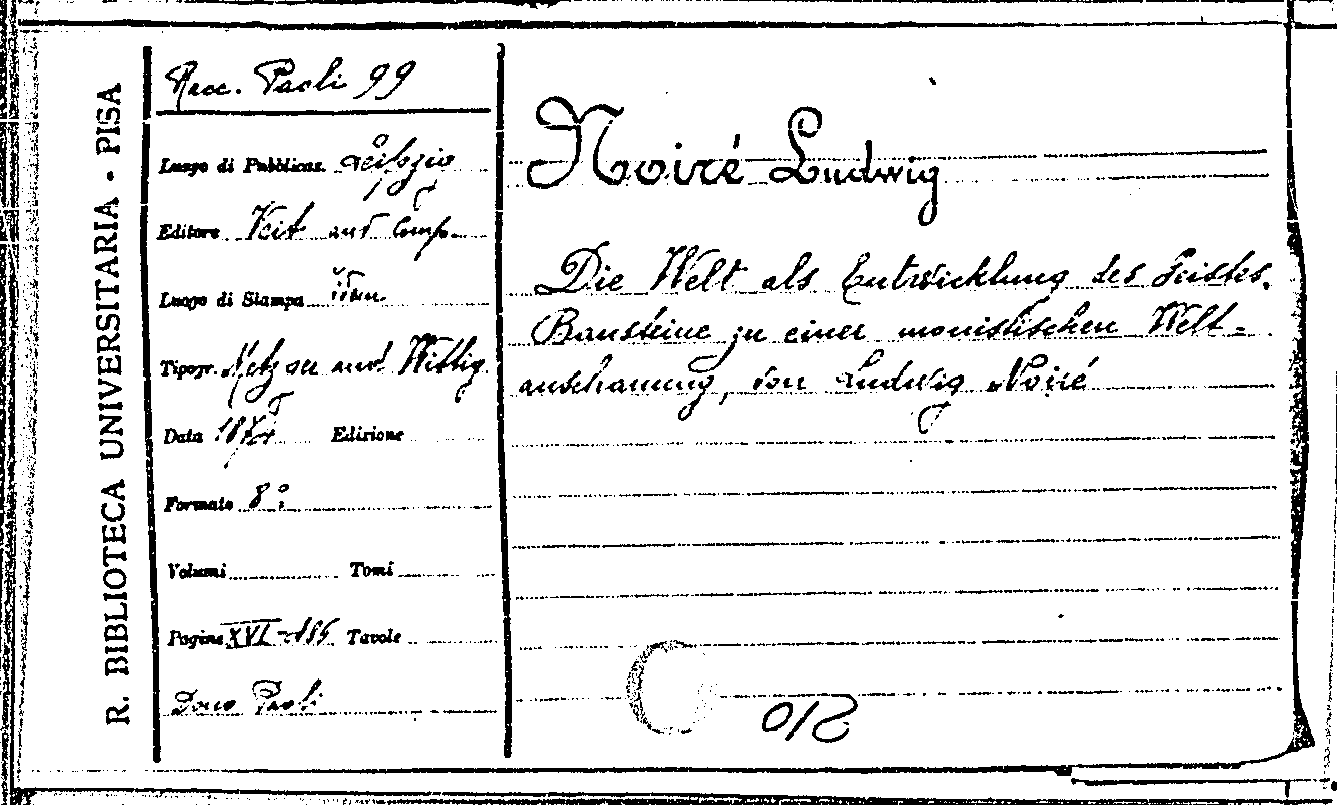 R. BIBLIOTECA UNIVERSITARIA - PISA
Racc. Paoli 99
Luogo di Pubblicaz. Leipzig
Editore Veit und Comp.
Luogo di Stampa
Tipogr. Metzger und Wittig
Data 1874 Edizione
Formato 8°:
Volumi Tomi
Pagine XVI-185 Tavole
Dono Paoli
Noiré Ludwig
Die Welt als Entwicklung des Geistes.
Bausteine zu einer monistischen Welt-
anschauung, von Ludwig Noiré
012